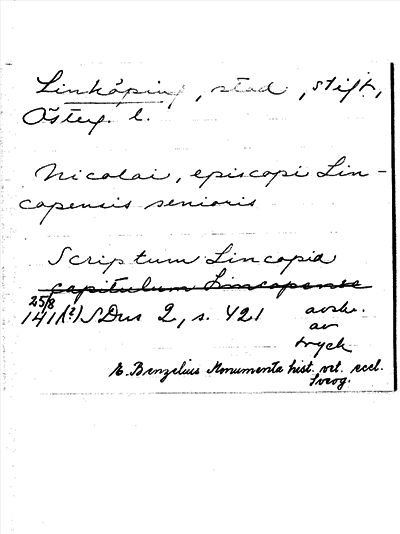 Linköping, stad, stift,
Österg. l.
Nicolai, episcopi Lin-
copensis senioris
Scriptum Lincopia
capitulum Lincopense
25/8
141(?) SDns 2, s. 421 avskr.
av
tryck
E. Benzelius Monumenta hist. vet. eccl.
Sveog.